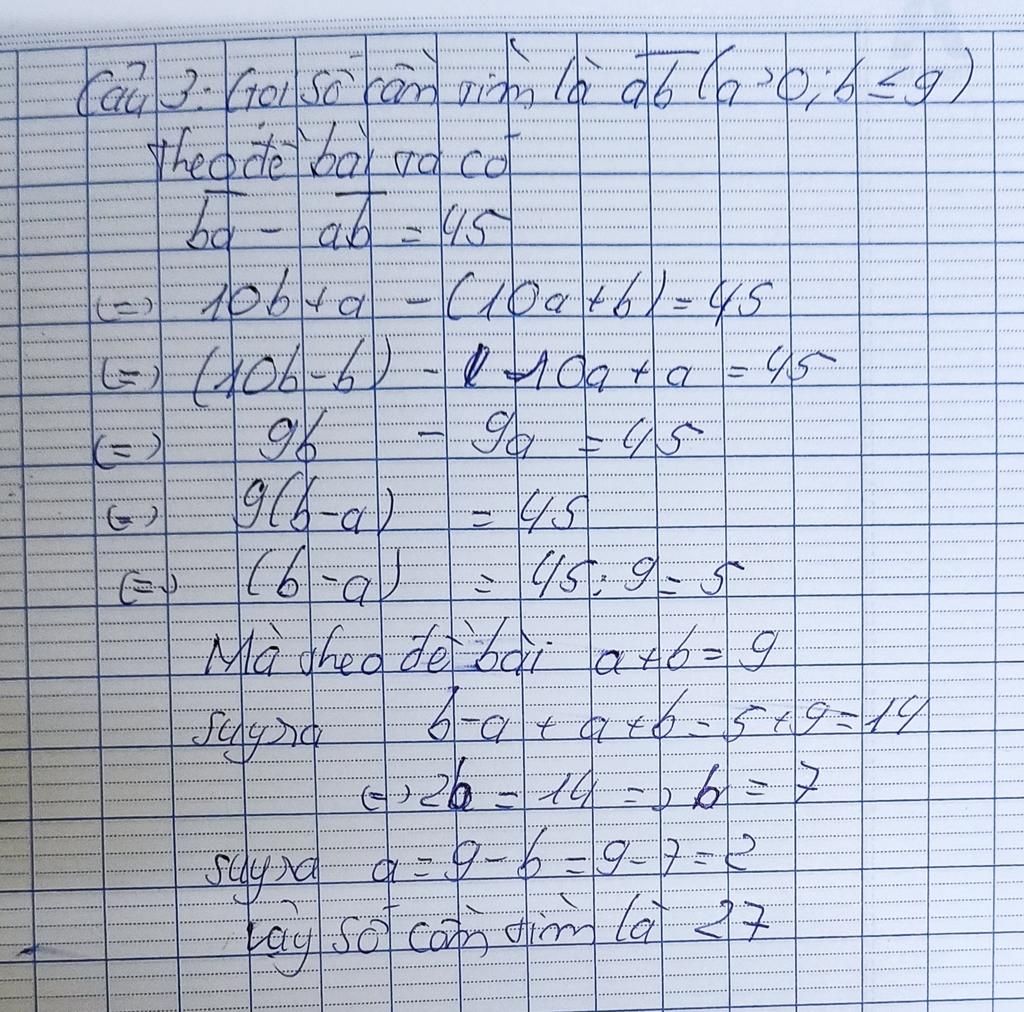 Câu 3: Gọi số cần tìm là ab (a > 0; b ≤ 9)
theo đề bài ta có
ba - ab = 45
(=) 10b + a - (10a + b) = 45
(=) (10b - b) - 10a + a = 45
(=) 9b - 9a = 45
(=) 9(b - a) = 45
(=) (b - a) = 45 : 9 = 5
Mà theo đề bài a + b = 9
suy ra b - a + a + b = 5 + 9 = 14
(=) 2b = 14 => b = 7
suy ra a = 9 - b = 9 - 7 = 2
Vậy số cần tìm là 27